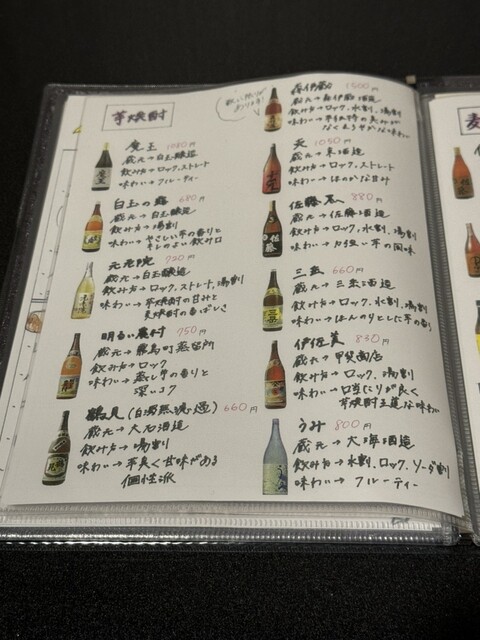 芋焼酎
魔王 1080円
蔵元→白玉醸造
飲み方→ロック、ストレート
味わい→フルーティー
白玉の露 680円
蔵元→白玉醸造
飲み方→湯割
味わい→やさしい芋の香りと
キレのよい飲み口
元老院 720円
蔵元→白玉醸造
飲み方→ロック、ストレート、湯割
味わい→芋焼酎の甘みと
麦焼酎の香ばしさ
明るい農村 750円
蔵元→霧島町蒸留所
飲み方→ロック
味わい→蒸し芋の香りと
深いコク
鶴見(白濁無濾過) 660円
蔵元→大石酒造
飲み方→湯割
味わい→辛良く甘味がある
個性派
森伊蔵 1500円
蔵元→森伊蔵酒造
飲み方→ロック、水割、湯割
味わい→
1050円
飲み方→ロック、ストレート
味わい→ほのかな甘み
佐藤 黒 880円
蔵元→佐藤酒造
飲み方→ロック、水割、湯割
味わい→力強い芋の風味
三岳 660円
蔵元→三岳酒造
飲み方→ロック、水割、湯割
味わい→ほんのりとした芋の香り
伊佐美 830円
蔵元→甲斐商店
飲み方→ロック、湯割
味わい→口当たりが良く
芋焼酎王道な味わい
うみ 800円
蔵元→大海酒造
飲み方→水割、ロック、ソーダ割
味わい→フルーティー